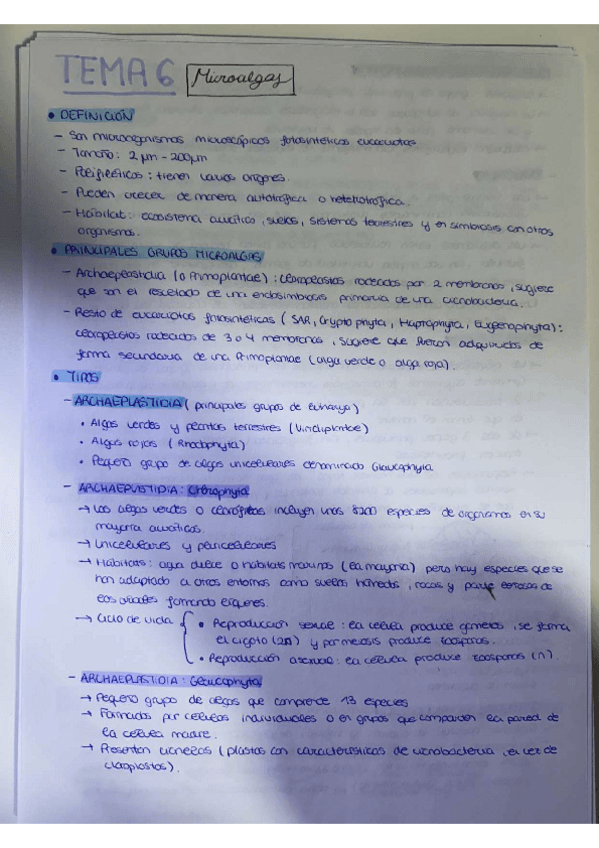 TEMA 6 Microalgas
• DEFINICIÓN
- Son microorganismos microscópicos fotosintéticos eucariotas
- Tamaño: 2 µm - 200µm
- Polifiléticos: tienen varios orígenes.
- Pueden crecer de manera autotrófica o heterotrófica.
- Hábitat: ecosistema acuático, suelos, sistemas terrestres y en simbiosis con otros
organismos.
• PRINCIPALES GRUPOS MICROALGAS
- Archaeplastidia (o Primoplantae): cloroplastos rodeados por 2 membranas, sugiere
que son el resultado de una endosimbiosis primaria de una cianobacteria.
- Resto de eucariotas fotosintéticos (SAR, Cryptophyta, Haptophyta, Euglenophyta):
cloroplastos rodeados de 3 o 4 membranas, sugiere que fueron adquiridos de
forma secundaria de una Primoplantae (alga verde o alga roja).
• TIPOS
- ARCHAEPLASTIDIA (principales grupos de Eukarya)
• Algas verdes y plantas terrestres (Viridiplantae)
• Algas rojas (Rhodophyta)
• Pequeño grupo de algas unicelulares denominado Glaucophyta
- ARCHAEPLASTIDIA: Chlorophyta
→ Las algas verdes o clorófitas incluyen unas 8200 especies de organismos en su
mayoría acuáticos.
→ Unicelulares y pluricelulares
→ Hábitats: agua dulce o hábitats marinos (la mayoría) pero hay especies que se
han adaptado a otros entornos como suelos húmedos, rocas y parte
los árboles formando líquenes.
→ Ciclo de vida • Reproducción sexual: la célula produce gametos, se forma
el cigoto (2n) y por meiosis produce zoosporas.
• Reproducción asexual: la célula produce zoosporas (n).
- ARCHAEPLASTIDIA: Glaucophyta
→ Pequeño grupo de algas que comprende 13 especies
→ Formadas por células individuales o en grupos que comparten la pared de
la célula madre.
→ Presentan cianelas (plastos con características de cianobacteria, en vez de
cloroplastos).